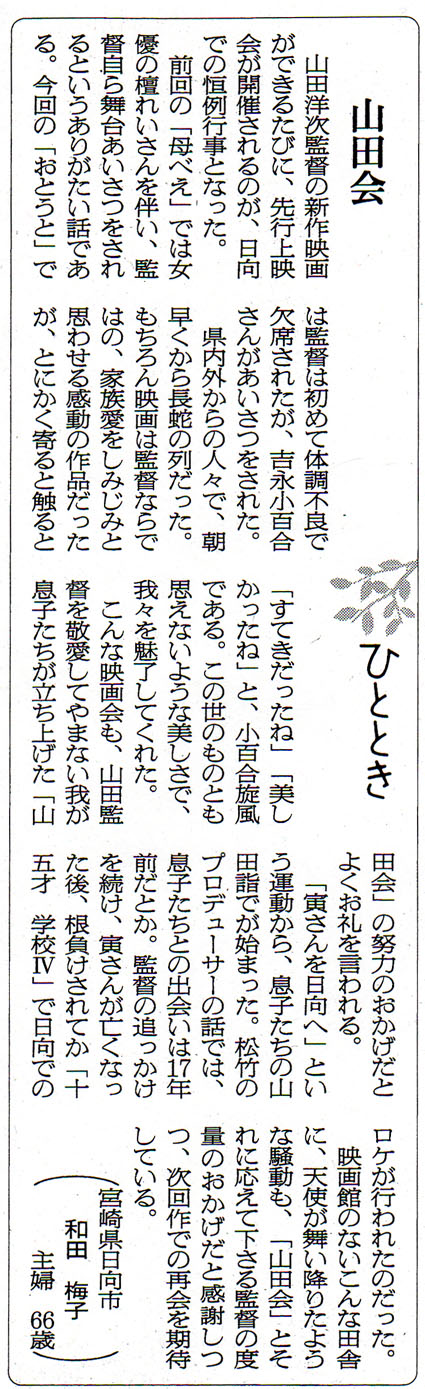 山田会
山田洋次監督の新作映画
ができるたびに、先行上映
会が開催されるのが、日向
での恒例行事となった。
前回の「母べえ」では女
優の檀れいさんを伴い、監
督自ら舞台あいさつをされ
るというありがたい話であ
る。今回の「おとうと」で
は監督は初めて体調不良で
欠席されたが、吉永小百合
さんがあいさつをされた。
県内外からの人々で、朝
早くから長蛇の列だった。
もちろん映画は監督ならで
はの、家族愛をしみじみと
思わせる感動の作品だった
が、とにかく寄ると触ると
ひととき
「すてきだったね」「美し
かったね」と、小百合旋風
である。この世のものとも
思えないような美しさで、
我々を魅了してくれた。
こんな映画会も、山田監
督を敬愛してやまない我が
息子たちが立ち上げた「山
田会」の努力のおかげだと
よくお礼を言われる。
「寅さんを日向へ」とい
う運動から、息子たちの山
田詣でが始まった。松竹の
プロデューサーの話では、
息子たちとの出会いは17年
前だとか。監督の追っかけ
を続け、寅さんが亡くなっ
た後、根負けされてか「十
五才　学校Ⅳ」で日向での
ロケが行われたのだった。
映画館のないこんな田舎
に、天使が舞い降りたよう
な騒動も、「山田会」とそ
れに応えて下さる監督の度
量のおかげだと感謝しつ
つ、次回作での再会を期待
している。
宮崎県日向市
和田　梅子
主婦　66歳